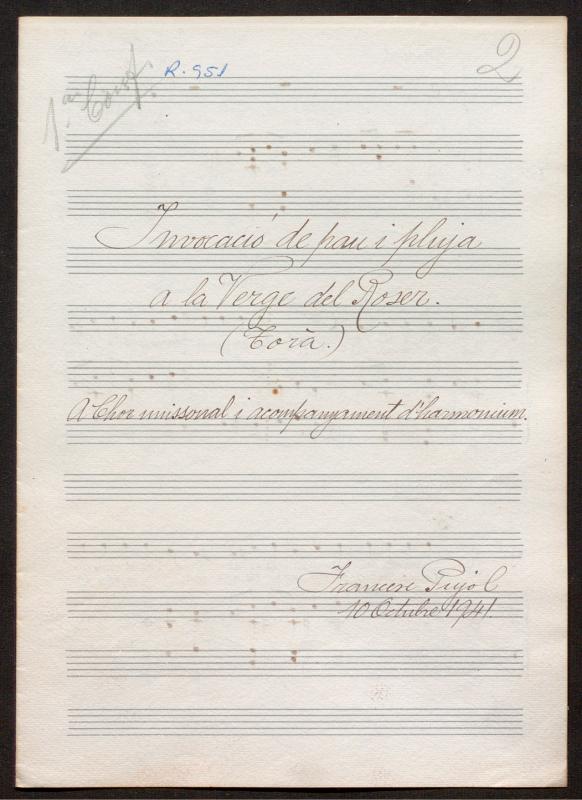 R. 951
2
Invocació de pau i pluja
a la Verge del Roser.
(Torà.)
A Chor unissonal i acompanyament d'harmonium.
Francesc Pujol
10 Octubre 1941.